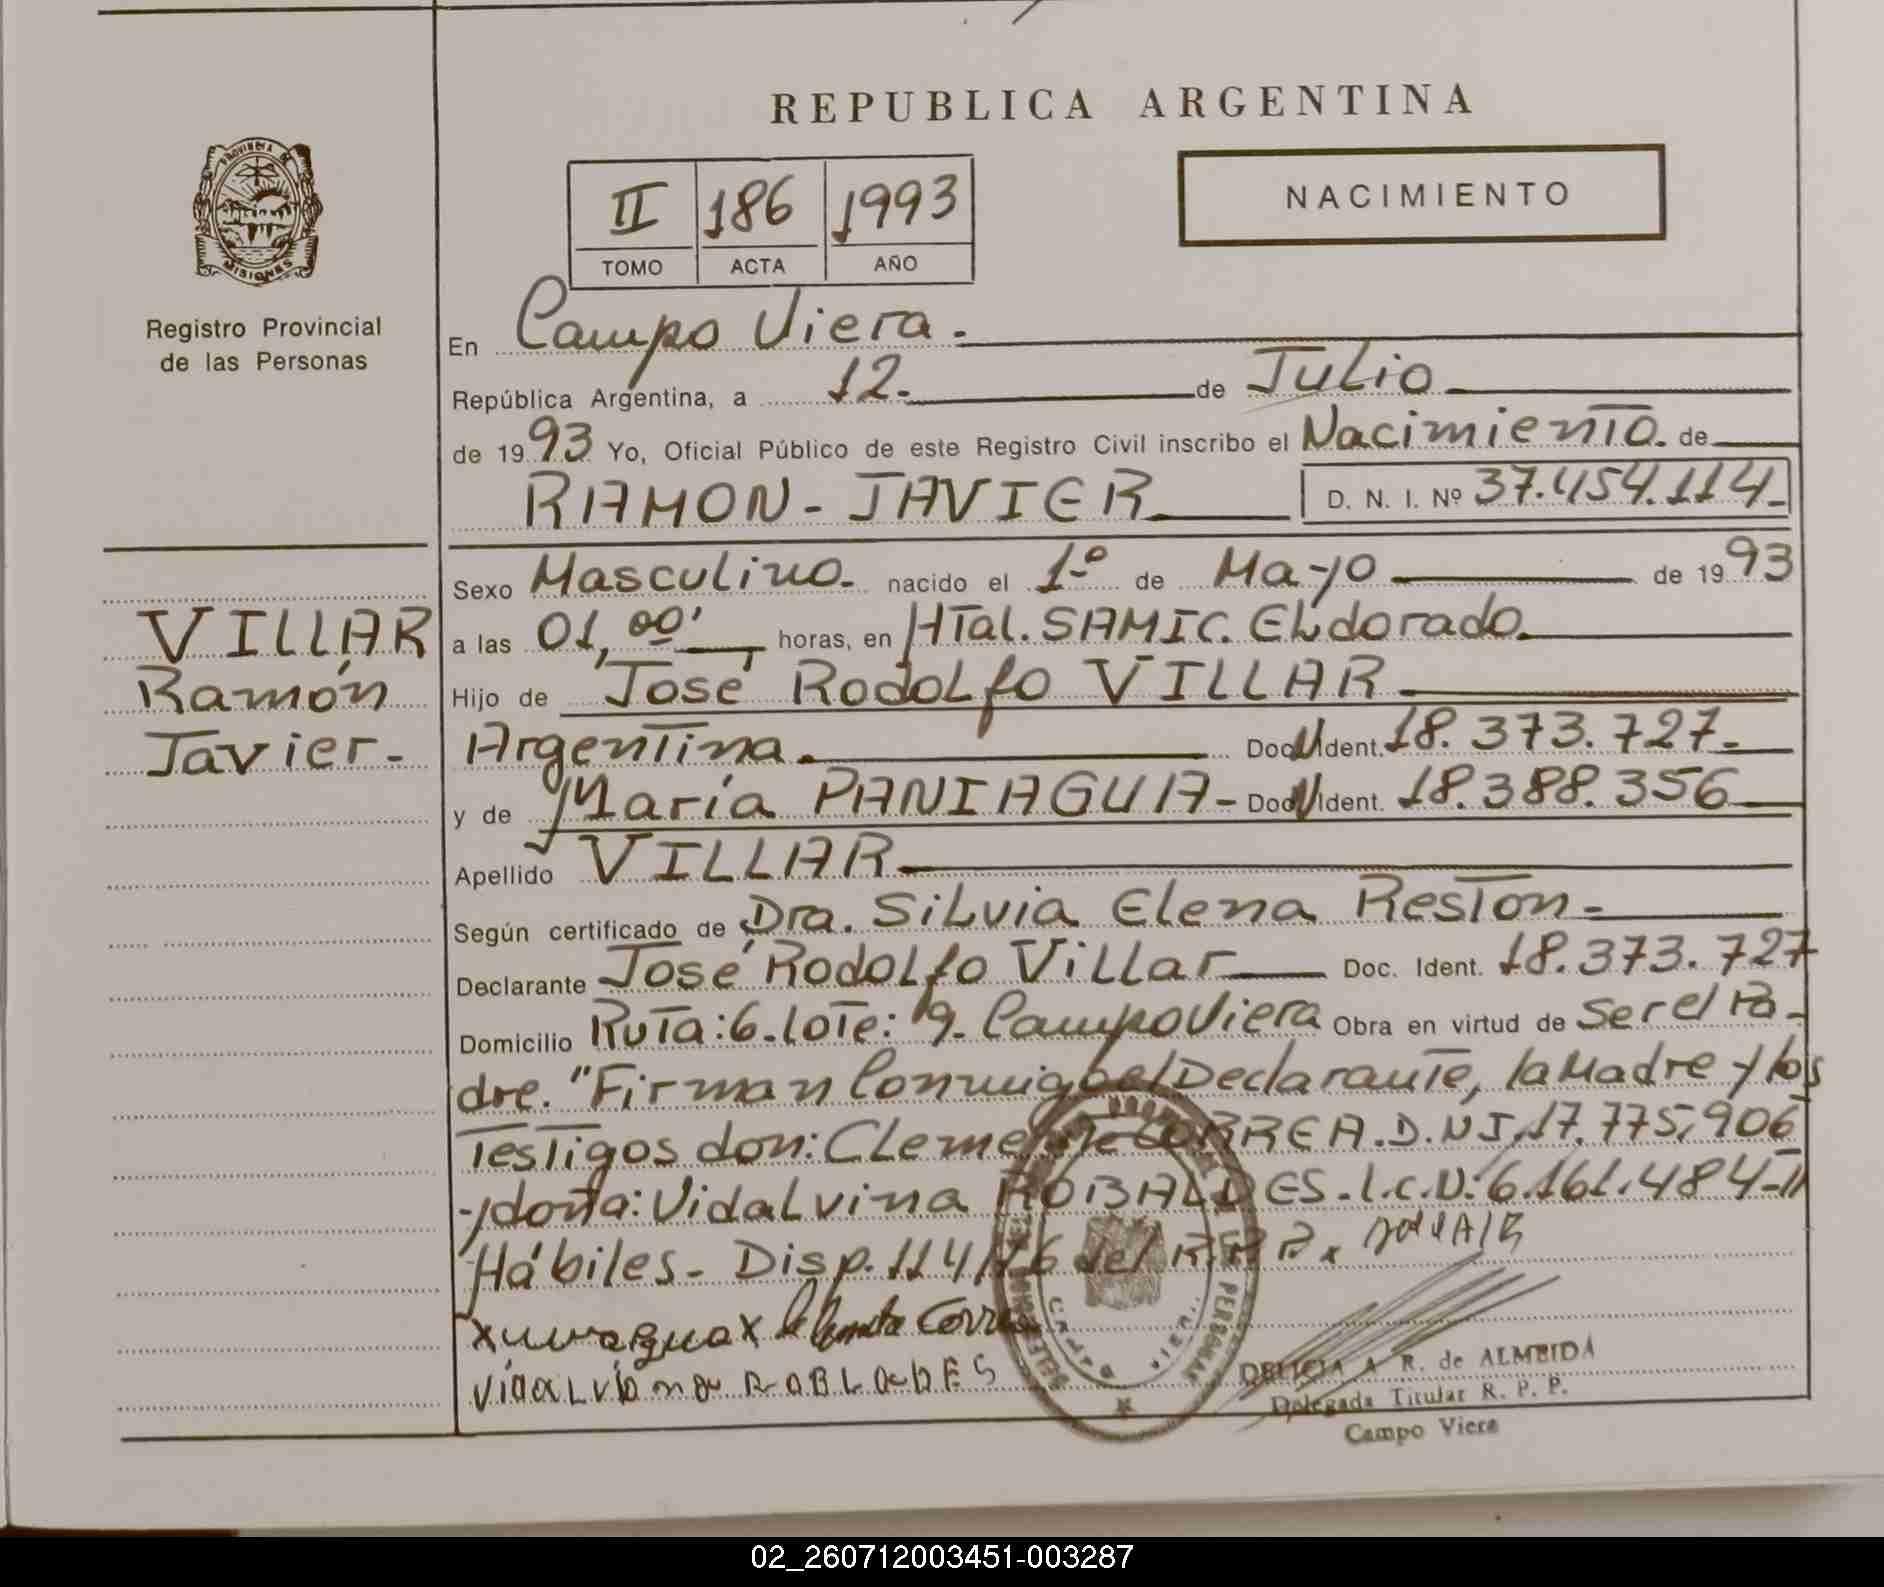 REPUBLICA ARGENTINA
PROVINCIA DE
MISIONES
Registro Provincial
de las Personas
II 186 1993
TOMO ACTA AÑO
NACIMIENTO
En Campo Viera.
República Argentina, a 12. de Julio
de 1993 Yo, Oficial Público de este Registro Civil inscribo el Nacimiento. de
RAMON - JAVIER D. N. I. Nº 37.454.114
VILLAR
Ramón
Javier.
Sexo Masculino. nacido el 1º de Mayo de 1993
a las 01,00' horas, en HTal. SAMIC. ELdorado.
Hijo de José RodoLfo VILLAR
Argentina. Doc. Ident. 18.373.727
y de María PANIAGUA - Doc. Ident. 18.388.356
Apellido VILLAR
Según certificado de Dra. SiLvia Elena Reston
Declarante José RodoLfo Villar Doc. Ident. 18.373.727
Domicilio Ruta: 6. lote: 9. Campo Viera Obra en virtud de ser el Pa-
dre. "Firman Conmigo el Declarante, la Madre y los
Testigos don: CLemente CORREA. D.N.I. 17.775,906
y doña: VidaLvina ROBALDES. L.C.N: 6.161.484-
Hábiles - Disp. 114/76 del R.P.P.
Correa
VidaLvina ROBLADES
DELICIA A. R. de ALMEIDA
Delegada Titular R. P. P.
Campo Viera
02_260712003451-003287